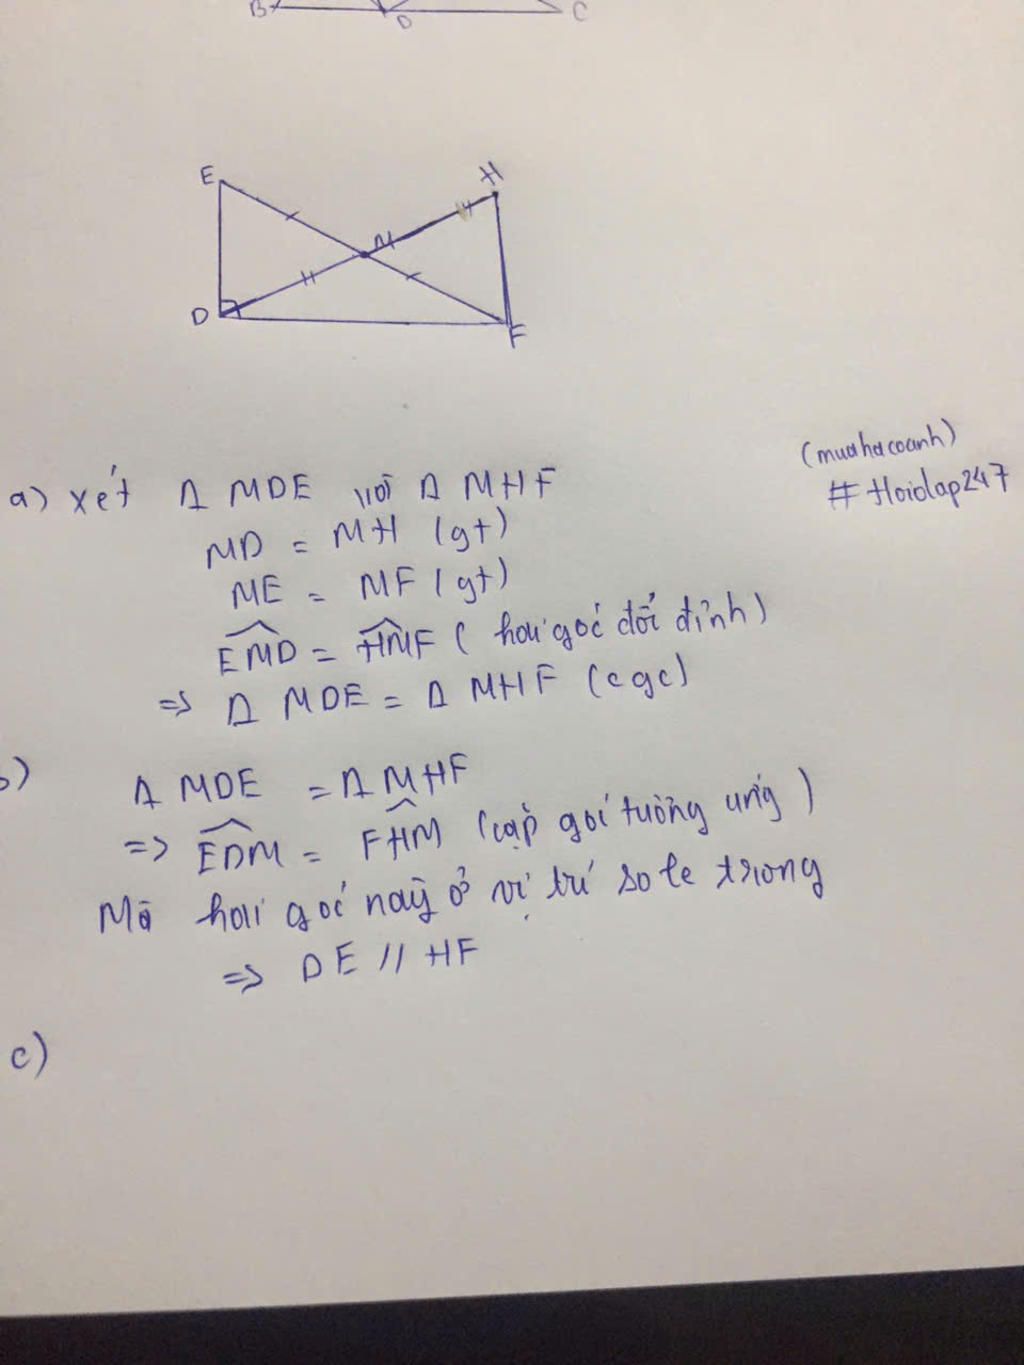 B D C
E H
M
D F
(muahacoanh)
#Hoidap247
a) Xét Δ MDE với Δ MHF
MD = MH (gt)
ME = MF (gt)
EMD = HMF (hai góc đối đỉnh)
=> Δ MDE = Δ MHF (cgc)
b) Δ MDE = Δ MHF
=> EDM = FHM (cặp góc tương ứng)
Mà hai góc này ở vị trí so le trong
=> DE // HF
c)